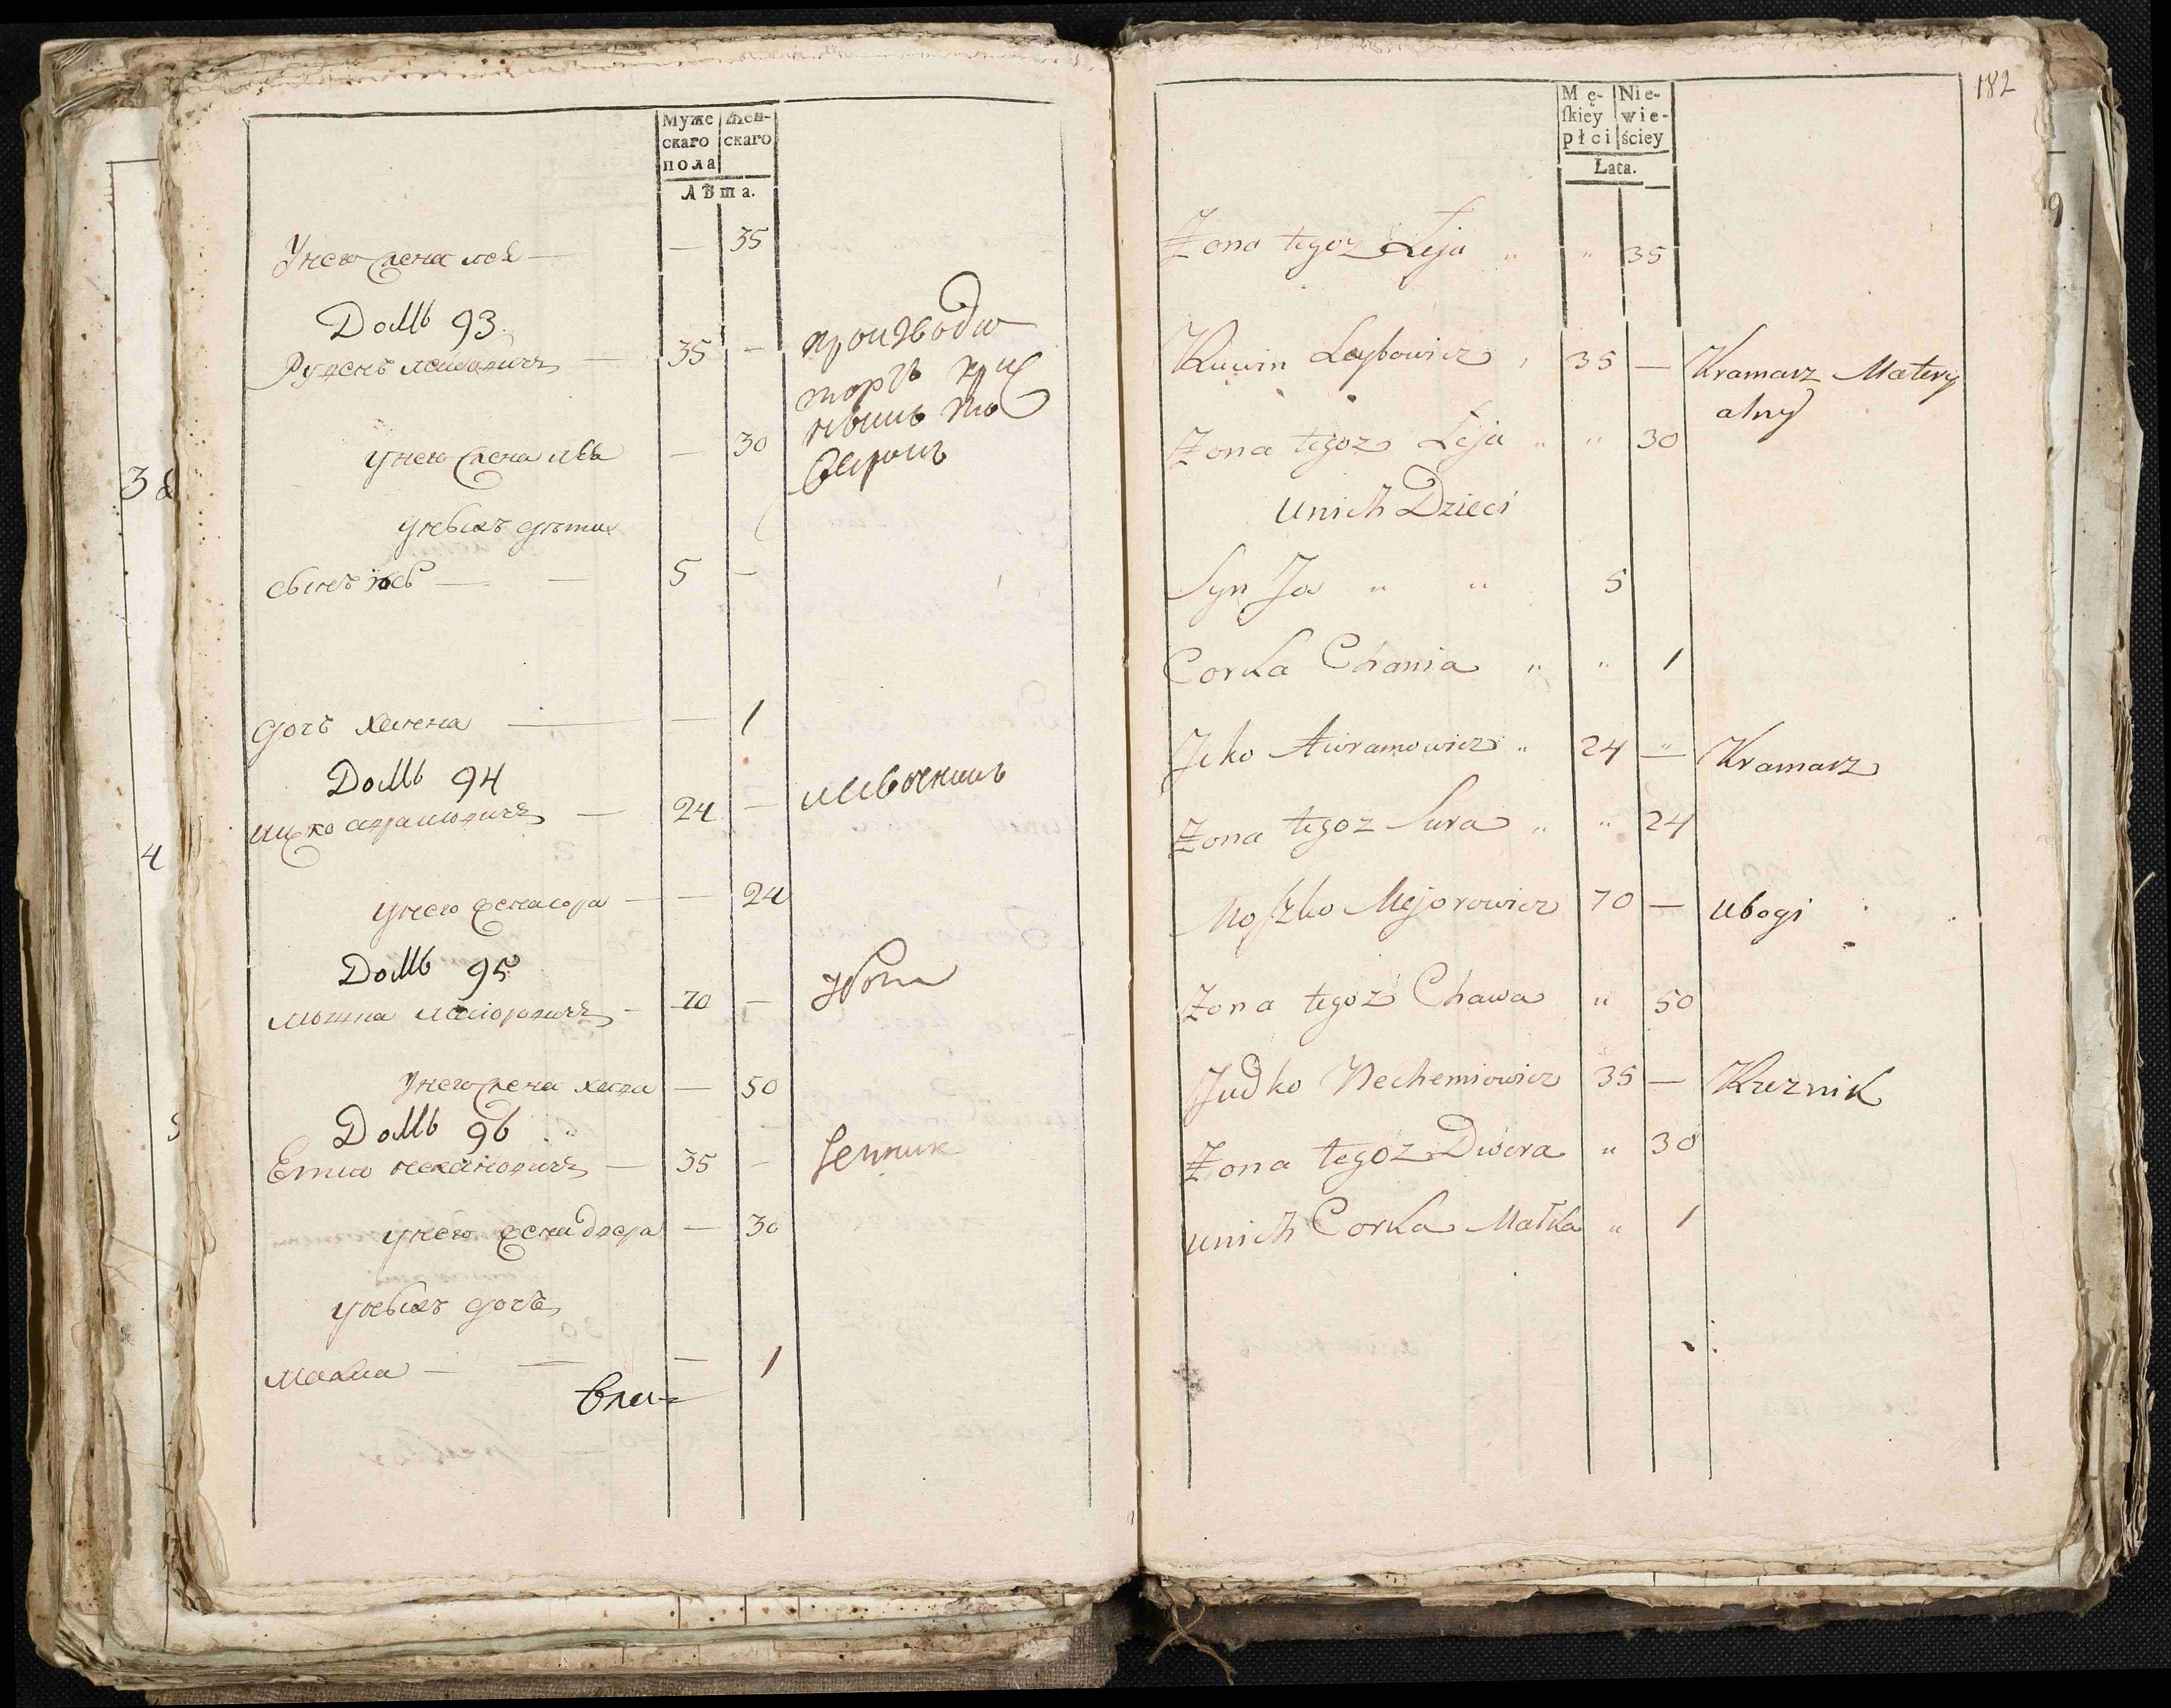 Муже
скаго
пола
Жен-
скаго
Лѣта.
У него жена лея — — 35
Домъ 93
Рувенъ лейбовичъ — 35 —
производи
торгъ
у него жена лѣя — 30
у небихъ дѣти
сынъ — — 5 —
дочь ханна — — 1
Домъ 94
ицко аврамовичъ — 24 —
у него жена сора — — 24
Домъ 95
мошка маиоровичъ — 70 —
у него жена хава — 50
Домъ 96
35 —
у него жена двера — 30
у небихъ дочь
малка — — — 1
182
Mę-
ſkiey
płci
Nie-
wie-
ściey
Łata.
Zona tegoz Leja " " 35
Ruwin Leybowicz , 35 — Kramarz Matery
alny
Zona tegoz Leja " " 30
unich Dzieci
Syn Jos " " 5
Corka Chania " " 1
Jcko Awramowicz " 24 — Kramarz
Zona tegoz Sura " " 24
Moszko Mejorowicz 70 — Ubogi
Zona tegoz Chawa " 50
Judko Nechemiowicz 35 — Kuznik
Zona tegoz Dwera " 30
unich Corka Małka " 1
3
4
9